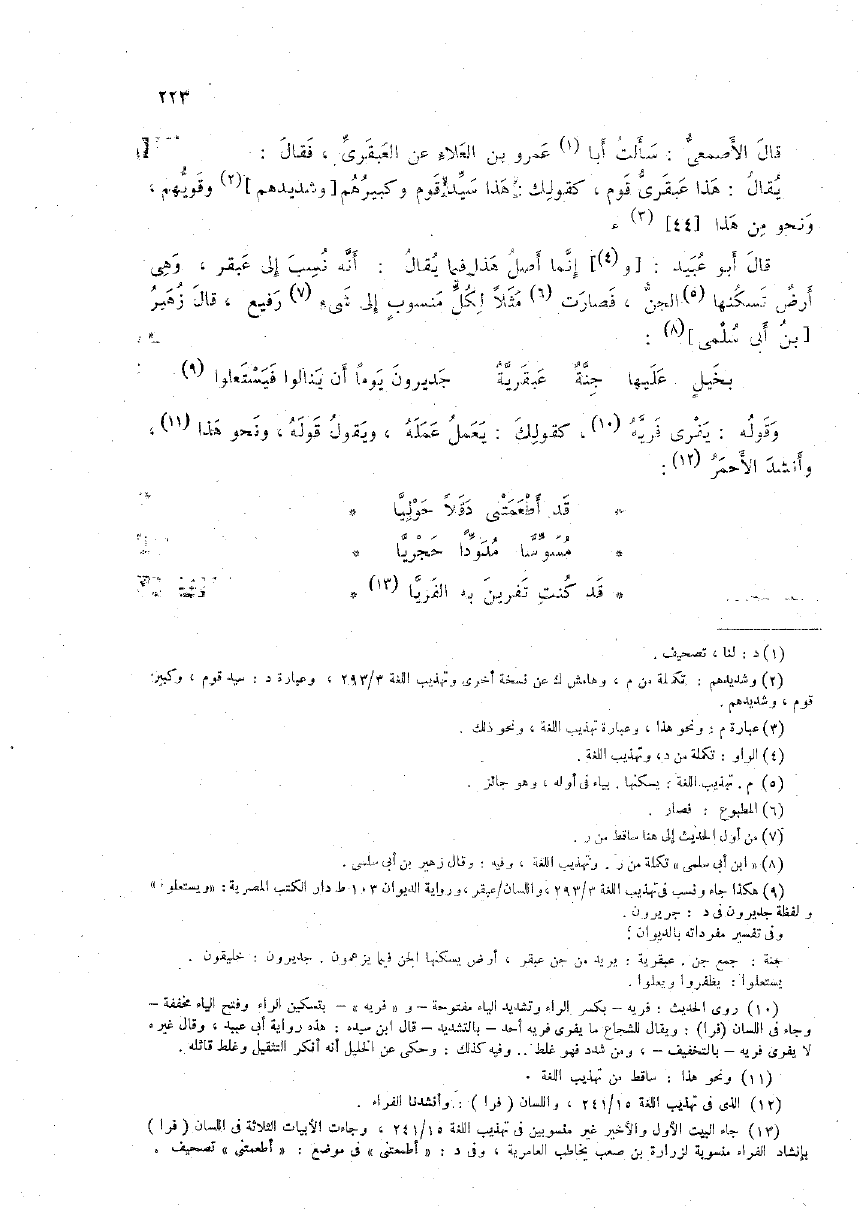 ٢٢٣
قالَ الأَصمعىُّ : سَأَلتُ أبا (١) عَمرو بن العَلاءِ عن العَبقَرىِّ ، فَقالَ :
يُقالُ : هَذا عَبقَرىُّ قَوم ، كقولِك : هَذا سَيِّدُ قَوم وكبيرُهُم [وشديدهم] (٢) وقَويُّهم ،
وَنحو مِن هَذا [٤٤] (٣) .
قالَ أبو عُبَيد : [و (٤)] إنَّما أصلُ هَذا فيما يُقالُ : أنَّه نُسِبَ إلى عَبقر ، وَهِى
أَرضٌ تَسكُنها (٥) الجنُّ ، فَصارَت (٦) مَثَلاً لِكُلِّ مَنسوبٍ إلى شَىءٍ (٧) رَفيع ، قالَ زُهَيرُ
[بنُ أبى سُلْمى] (٨) :
بخَيلٍ عَلَيها جِنَّةٌ عَبقَريَّةٌ جَديرونَ يَوماً أن يَنالوا فَيَسْتَعلوا (٩)
وَقَولُه : يَفْرِى فَرِيَّهُ (١٠) ، كقولِكَ : يَعمَلُ عَمَلَهُ ، ويَقولُ قَولَهُ ، ونَحو هَذا (١١) ،
وأَنشدَ الأَحمَرُ (١٢) :
* قَد أَطْعَمَتْنِى دَقَلاً حَوْلِيَّا *
* مُسَوِّسًا مُدَوِّدًا حَجْرِيَّا *
* قَد كُنتِ تَفرينَ به الفَرِيَّا (١٣) *
(١) د : لنا ، تصحيف .
(٢) وشديدهم : تكملة من م ، وهامش ك عن نسخة أخرى وتهذيب اللغة ٢٩٣/٣ ، وعبارة د : سيد قوم ، وكبير
قوم ، وشديدهم .
(٣) عبارة م : ونحو هذا ، وعبارة تهذيب اللغة ، ونحو ذلك .
(٤) الواو : تكملة من د، وتهذيب اللغة .
(٥) م . تهذيب اللغة : يسكنها . بياء فى أوله ، وهو جائز .
(٦) المطبوع : فصار .
(٧) من أول الحديث إلى هنا ساقط من ر .
(٨) « ابن أبى سلمى » تكلة من ر . وتهذيب اللغة ، وفيه : وقال زهير بن أبى سلمى .
(٩) هكذا جاء ونسب فى تهذيب اللغة ٢٩٣/٣ ،واللسان/عبقر ،ورواية الديوان ١٠٣ ط دار الكتب المصرية : «ويستعلوا »
و لفظة جديرون فى د : جريرون .
وفى تفسير مفرداته بالديوان :
جنة : جمع جن . عبقرية : يريد من جن عبقر ، أرض يسكنها الجن فيما يزعمون . جديرون : خليقون .
يستعلوا : يظفروا ويعلوا .
(١٠) روى الحديث : فريه – بكسر الراء وتشديد الياء مفتوحة – و « فريه » – بتسكين الراء وفتح الياء مخففة –
وجاء فى اللسان (فرا) : ويقال للشجاع ما يفرى فريه أحد – بالتشديد – قال ابن سيده : هذه رواية أبى عبيد ، وقال غيره
لا يفرى فريه – بالتخفيف – ، ومن شدد فهو غلط .. وفيه كذلك : وحكى عن الخليل أنه أنكر التثقيل وغلط قائله .
(١١) ونحو هذا : ساقط من تهذيب اللغة .
(١٢) الذى فى تهذيب اللغة ٢٤١/١٥ ، واللسان ( فرا ) : وأنشدنا الفراء .
(١٣) جاء البيت الأول والأخير غير منسوبين فى تهذيب اللغة ٢٤١/١٥ ، وجاءت الأبيات الثلاثة فى اللسان ( فرا )
بإنشاد الفراء منسوبة لزرارة بن صعب يخاطب العامرية ، وفى د : « أطمعتنى » فى موضع : « أطعمتنى » تصحيف .